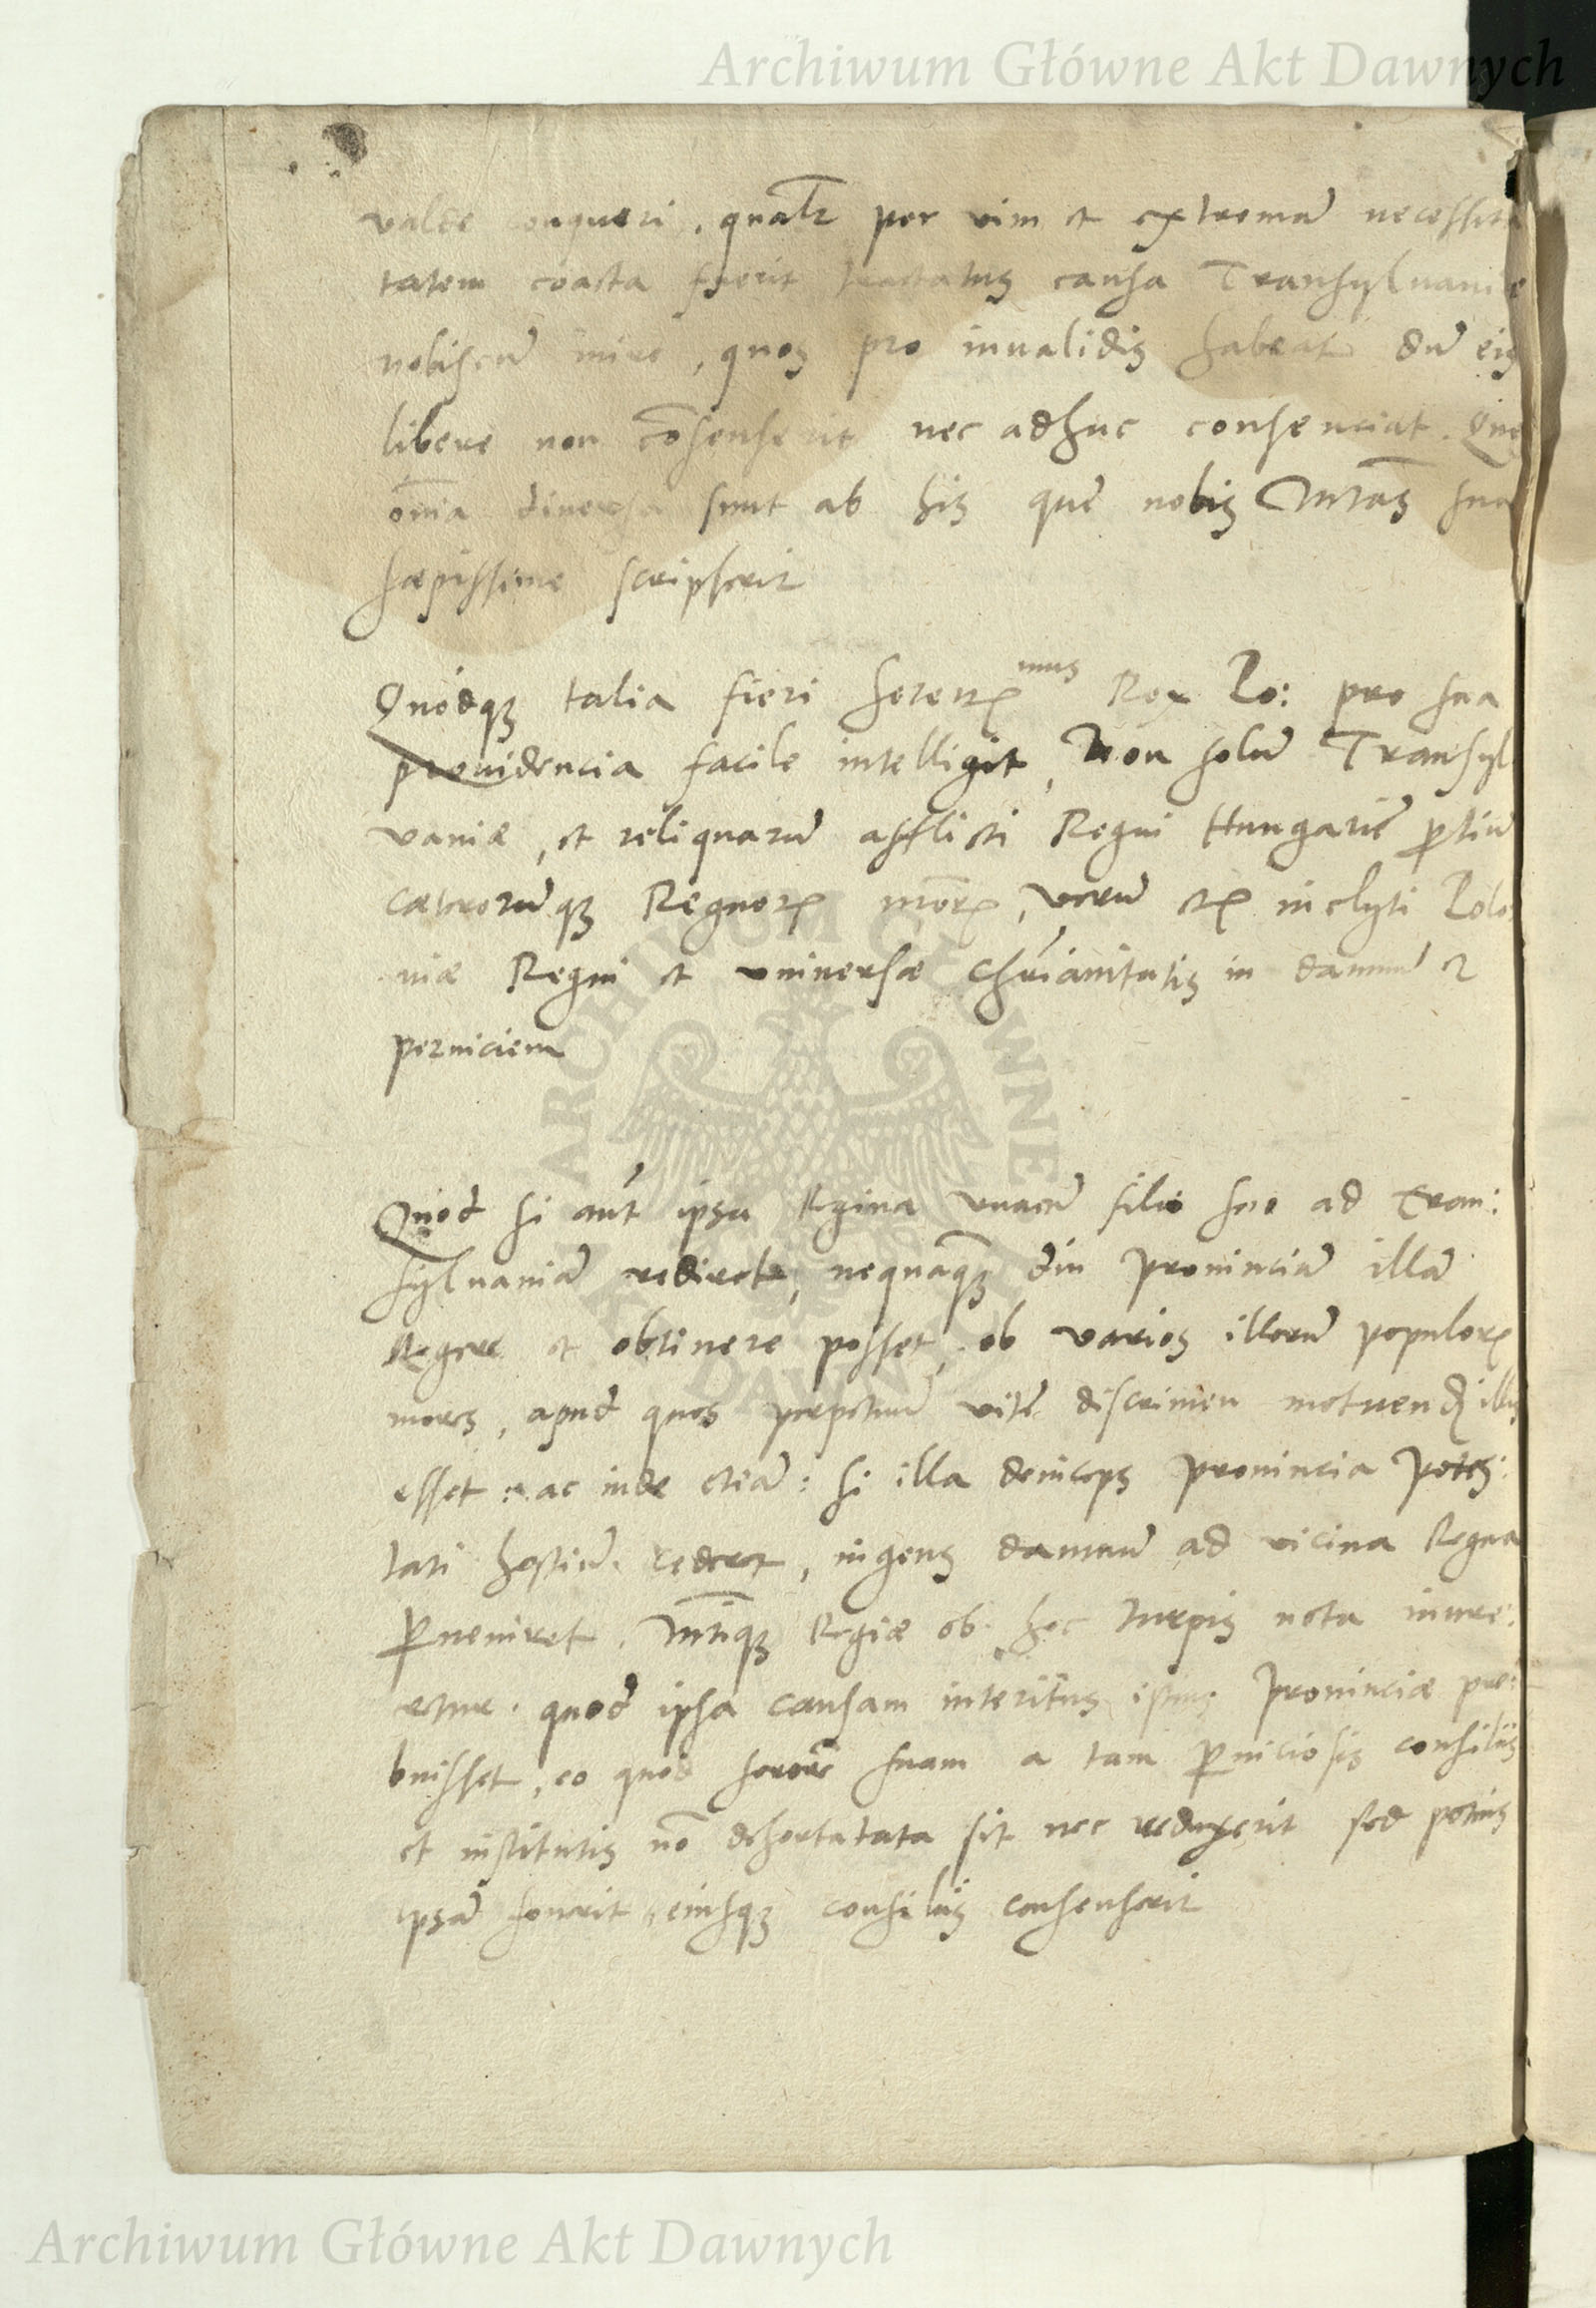 Archiwum Główne Akt Dawnych
valde conqueri, qualr per vim et extremā necessita
tatem coacta fuerit tractatus causa Transyluaniæ
nobiscū inire, quos pro inualidis habeat dū eis
libere non cōsenserit nec adhuc consenciat. Que
oīa diuersa sunt ab his que nobis Mtas sua
sæpissime scripserit
Quodqʒ talia fieri sereniss mus Rex Po: pro sua
prouidencia facile intelligit, Non solū Transyl
vaniæ, et reliquarū afflicti Regni Hungarie ptiū
cæterorūqʒ Regnorꝝ nrorꝝ, verū etꝫ inclyti Polo:
niæ Regni et vniuersæ chrianitatis in damnū et
perniciem
Quod si aut ipsa Regina vnacū filio suo ad Tran:
syluaniā rediret, nequaqʒ diu prouinciā illā
Regere et obtinere posset, ob varios illorū populorꝝ
mores, apud quos perpetuū vite discrimen metuendū illis
esset: ac inde etiā: si illa deinceps prouincia potes:
tati hostiū cederet, ingens damnū ad vicina Regna
pueniret. Mtiqʒ Regiæ ob hoc turpis nota inure:
retur. quod ipsa causam interitus istius prouinciæ pre:
buisset, eo quod sororē suam a tam pniciosis consiliis
et institutis nō dehortatata sit nec reduxerit sed potius
ipsā fouerit, eiusqʒ consiliis consenserit
ARCHIWUM GŁÓWNE AKT DAWNYCH
Archiwum Główne Akt Dawnych